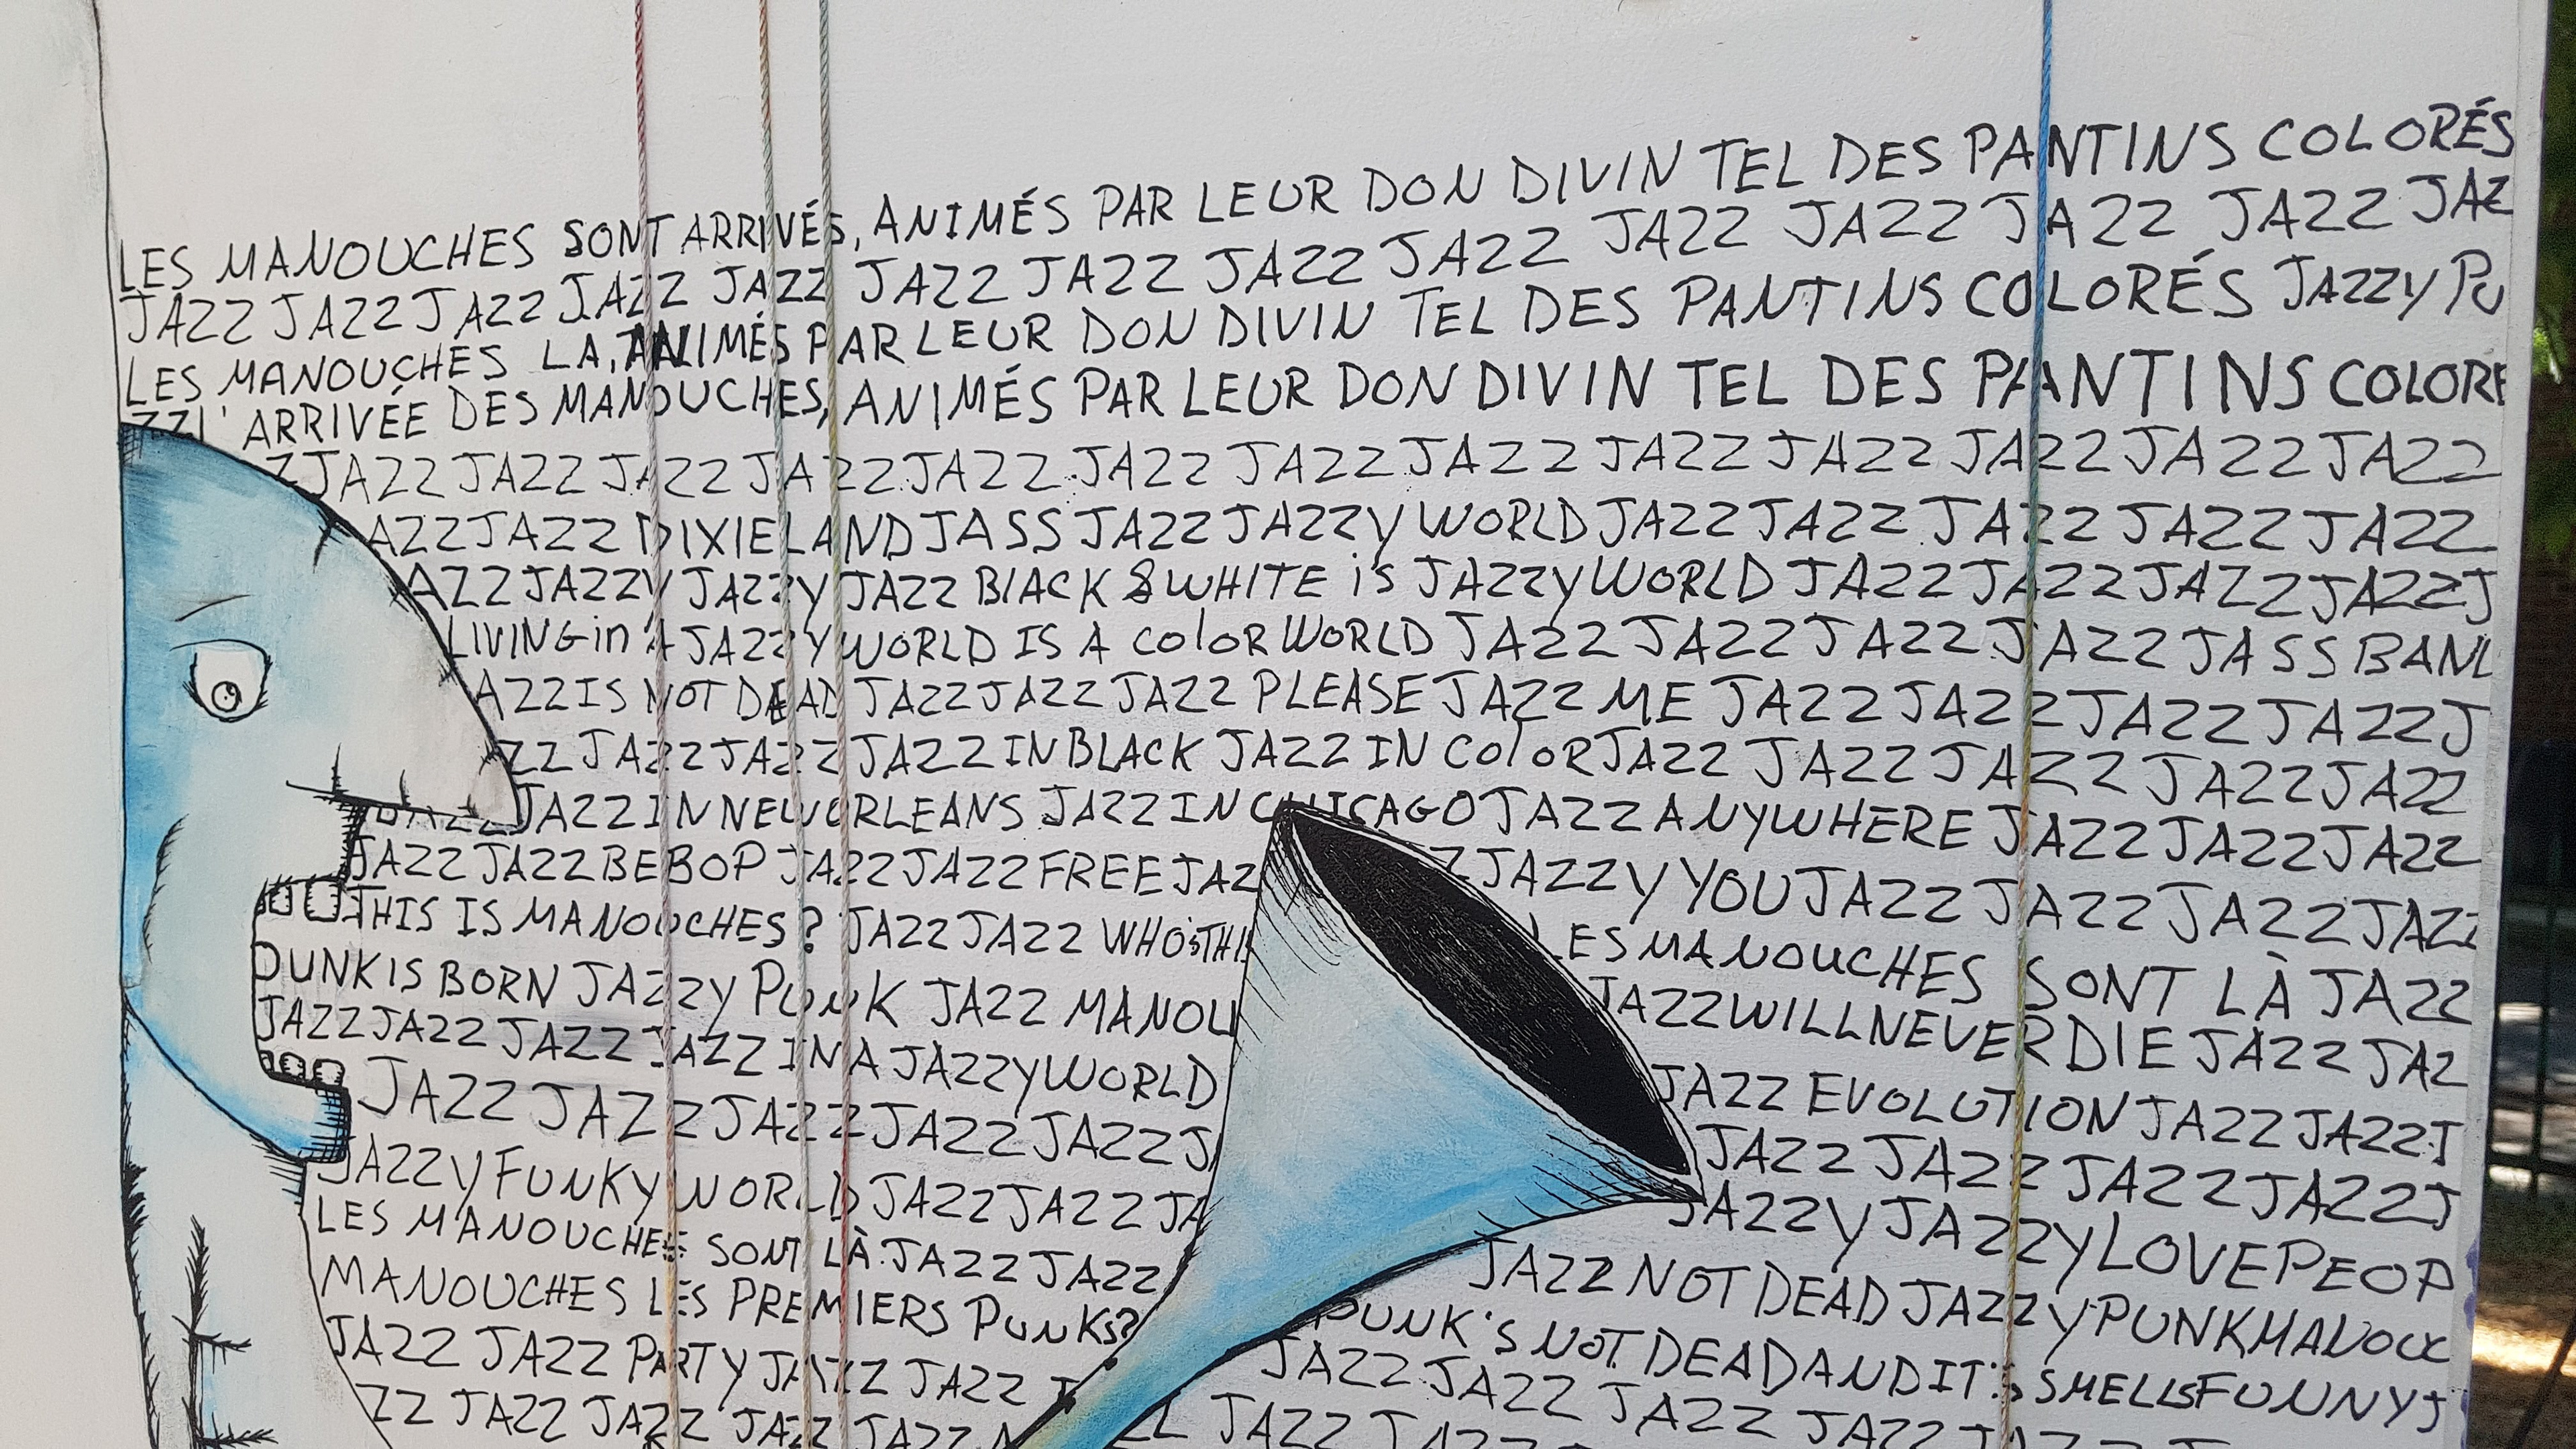 LES MANOUCHES SONT ARRIVÉS, ANIMÉS PAR LEUR DON DIVIN TEL DES PANTINS COLORÉS
JAZZ JAZZ JAZZ JAZZ JAZZ JAZZ JAZZ JAZZ JAZZ JAZZ JAZZ JAZZ JAZZ JAZ
LES MANOUCHES LA, ANIMÉS PAR LEUR DON DIVIN TEL DES PANTINS COLORÉS JAZZY PU
ZZ L'ARRIVÉE DES MANOUCHES, ANIMÉS PAR LEUR DON DIVIN TEL DES PANTINS COLORE
Z JAZZ JAZZ JAZZ JAZZ JAZZ JAZZ JAZZ JAZZ JAZZ JAZZ JAZZ JAZZ JAZZ
AZZ JAZZ DIXIELAND JASS JAZZ JAZZY WORLD JAZZ JAZZ JAZZ JAZZ JAZZ
AZZ JAZZY JAZZY JAZZ BlACK & WHITE iS JAZZY WORLD JAZZ JAZZ JAZZ JAZZ J
LIVING in A JAZZY WORLD IS A COloR WORLD JAZZ JAZZ JAZZ JAZZ JASS BAN
AZZ IS NOT DEAD JAZZ JAZZ JAZZ PLEASE JAZZ ME JAZZ JAZZ JAZZ JAZZ J
ZZ JAZZ JAZZ JAZZ IN BLACK JAZZ IN COloR JAZZ JAZZ JAZZ JAZZ JAZZ
JAZZ JAZZ IN NEW ORLEANS JAZZ IN CHICAGO JAZZ ANYWHERE JAZZ JAZZ JAZZ
JAZZ JAZZ BEBOP JAZZ JAZZ FREE JAZ Z JAZZY YOU JAZZ JAZZ JAZZ JAZZ
THIS IS MANOUCHES? JAZZ JAZZ WHO'S THIS LES MANOUCHES SONT LÀ JAZZ
PUNK IS BORN JAZZY PUNK JAZZ MANOU JAZZ WILL NEVER DIE JAZZ JAZ
JAZZ JAZZ JAZZ JAZZ IN A JAZZY WORLD JAZZ EVOLUTION JAZZ JAZZ J
JAZZ JAZZ JAZZ JAZZ JAZZ J JAZZ JAZZ JAZZ JAZZ J
JAZZY FUNKY WORLD JAZZ JAZZ JA JAZZY JAZZY LOVE PEOP
LES MANOUCHES SONT LÀ JAZZ JAZZ JAZZ NOT DEAD JAZZY PUNK MANOUC
MANOUCHES LES PREMIERS PUNKS? PUNK'S NOT DEAD AND IT'S SMELLS FUNNY J
JAZZ JAZZ PARTY JAZZ JAZZ J JAZZ JAZZ JAZZ JAZZ
ZZ JAZZ JAZZ JAZZ JAZZ ZZ JAZZ